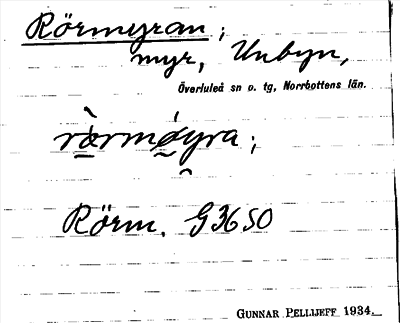 Rörmyran;
myr, Unbyn,
Överluleå sn o. tg, Norrbottens län.
rœ̀rmǿyra;
Rörm. G3650
GUNNAR PELLIJEFF 1934.